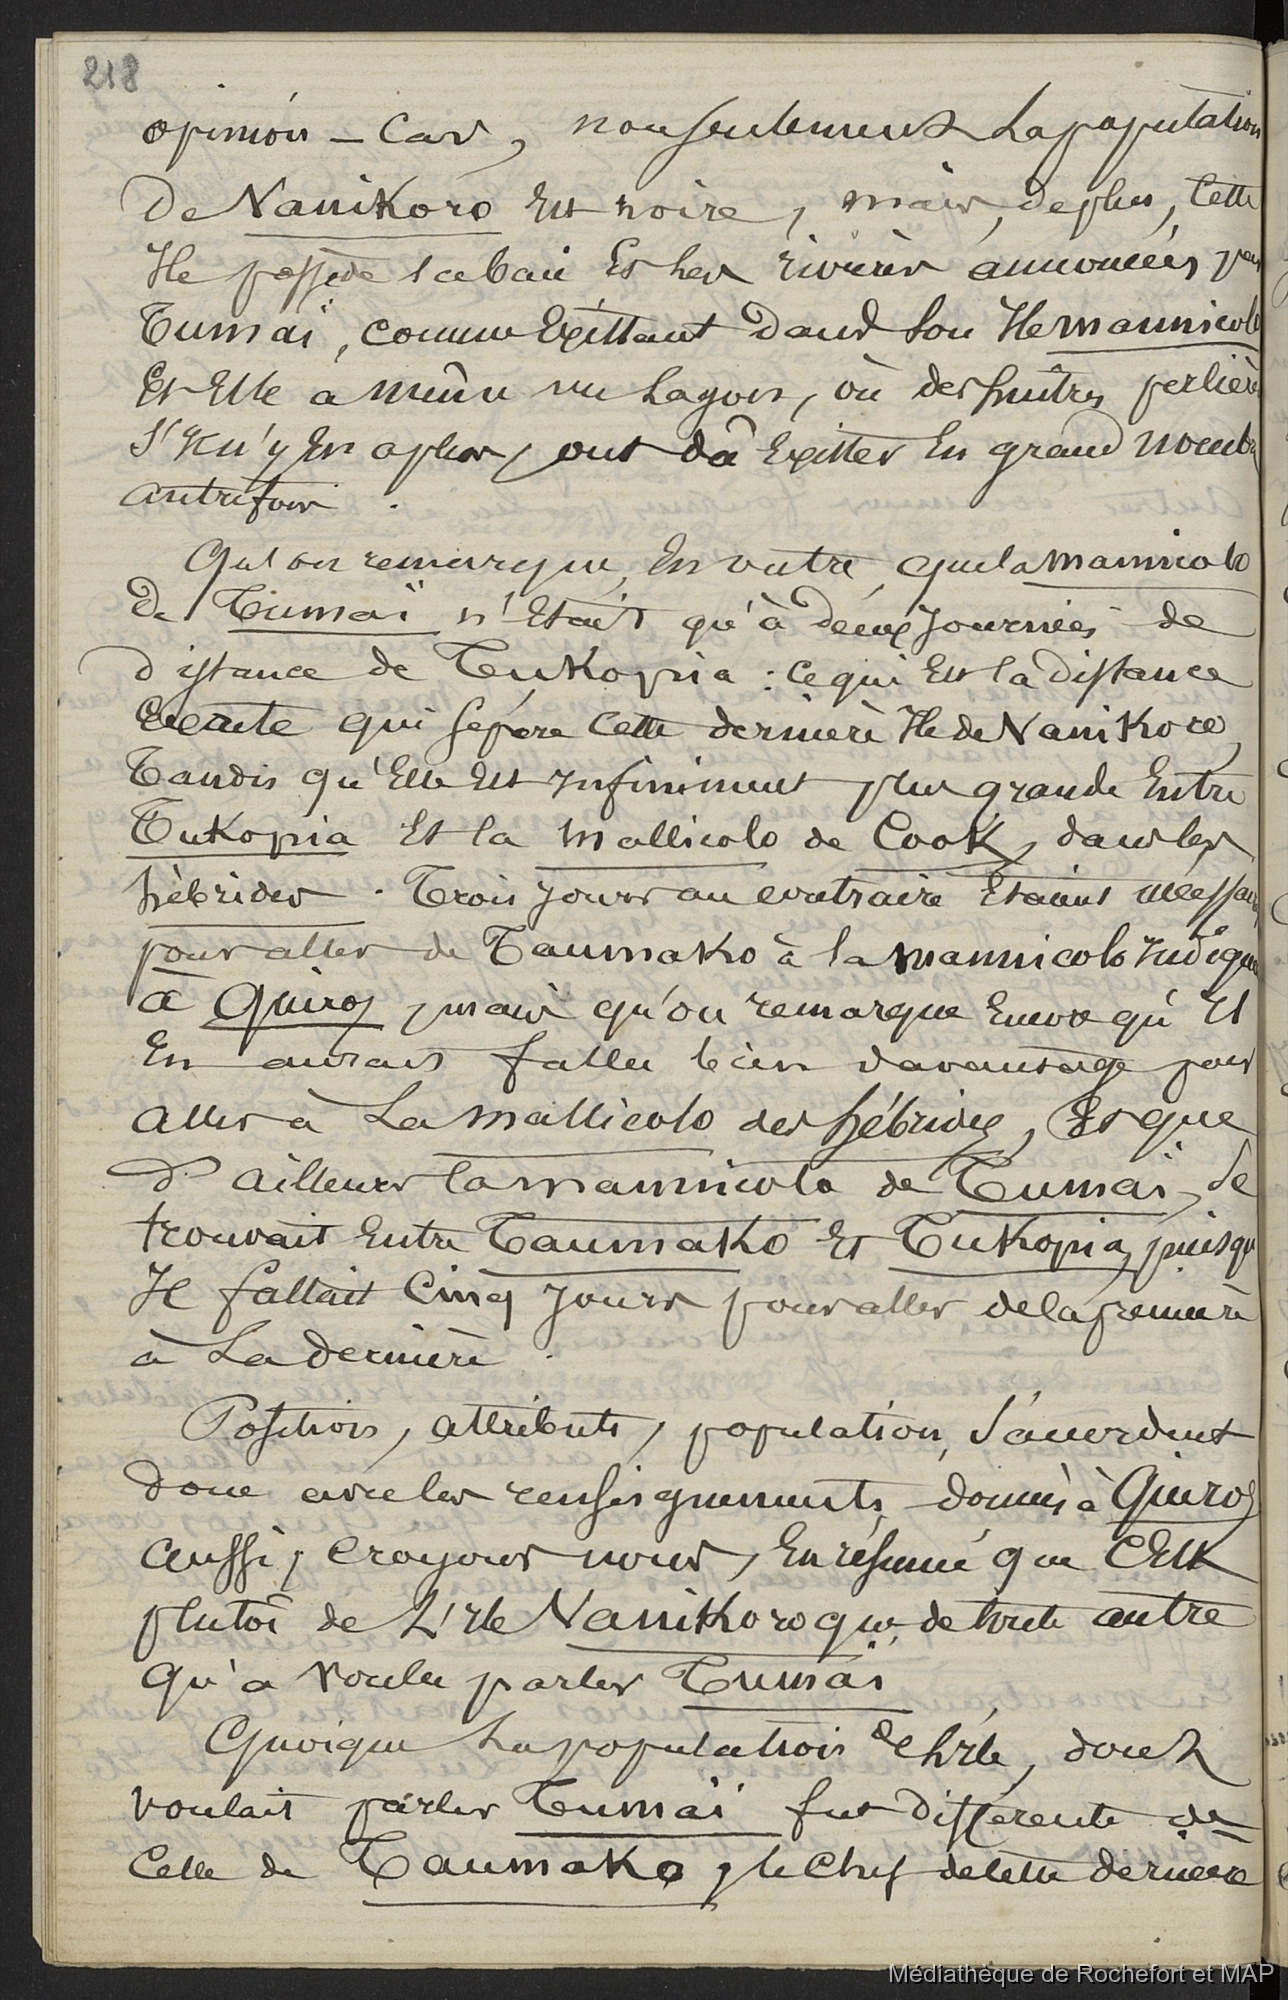 218
opinion – Car, non seulement la population
de Vanikoro est noire, mais, de plus, cette
Ile possède la baie et les rivières annoncées par
Tumaï, comme existant dans son Ile mannicolo
et Elle a même un lagon, où des huîtres perlières
s'il n'y en a plus, ont dû exister en grand nombre
autrefois.
Qu'on remarque, en outre, que la mannicolo
de Tumaï n'était qu'à deux journées de
distance de Tukopia : ce qui est la distance
exacte qui sépare cette dernière Ile de Vanikoro,
Tandis qu'Elle est infiniment plus grande entre
Tukopia et la Mallicolo de Cook, dans les
hébrides. Trois jours au contraire étaient nécessaires
pour aller de Taumako à la mannicolo indiquée
à Quiros, mais qu'on remarque encore qu'il
en aurait fallu bien davantage pour
aller à la mallicolo des hébrides, et que
d'ailleurs la mannicolo de Tumaï, se
trouvait entre Taumako et Tukopia, puisqu'
il fallait cinq jours pour aller de la première
à la dernière.
Position, attributs, population, s'accordent
donc avec les renseignements donnés à Quiros
aussi, croyons nous, en résumé que c'est
plutôt de l'île Vanikoro que de toute autre
qu'a voulu parler Tumaï
Quoique la population de l'île, dont
voulait parler Tumaï fut différente de
celle de Taumako, le chef de cette dernière
Médiathèque de Rochefort et MAP